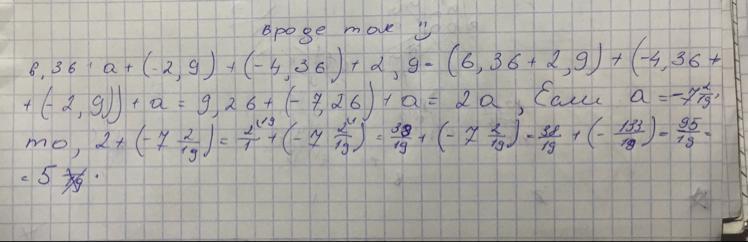 вроде так ")
6,36 + a + (-2,9) + (-4,36) + 2,9 = (6,36 + 2,9) + (-4,36 +
+ (-2,9)) + a = 9,26 + (-7,26) + a = 2a, Если a = -7 2/19,
то, 2 + (-7 2/19) = 2/1 + (-7 2/19) = 38/19 + (-7 2/19) = 38/19 + (-133/19) = 95/19 =
= 5